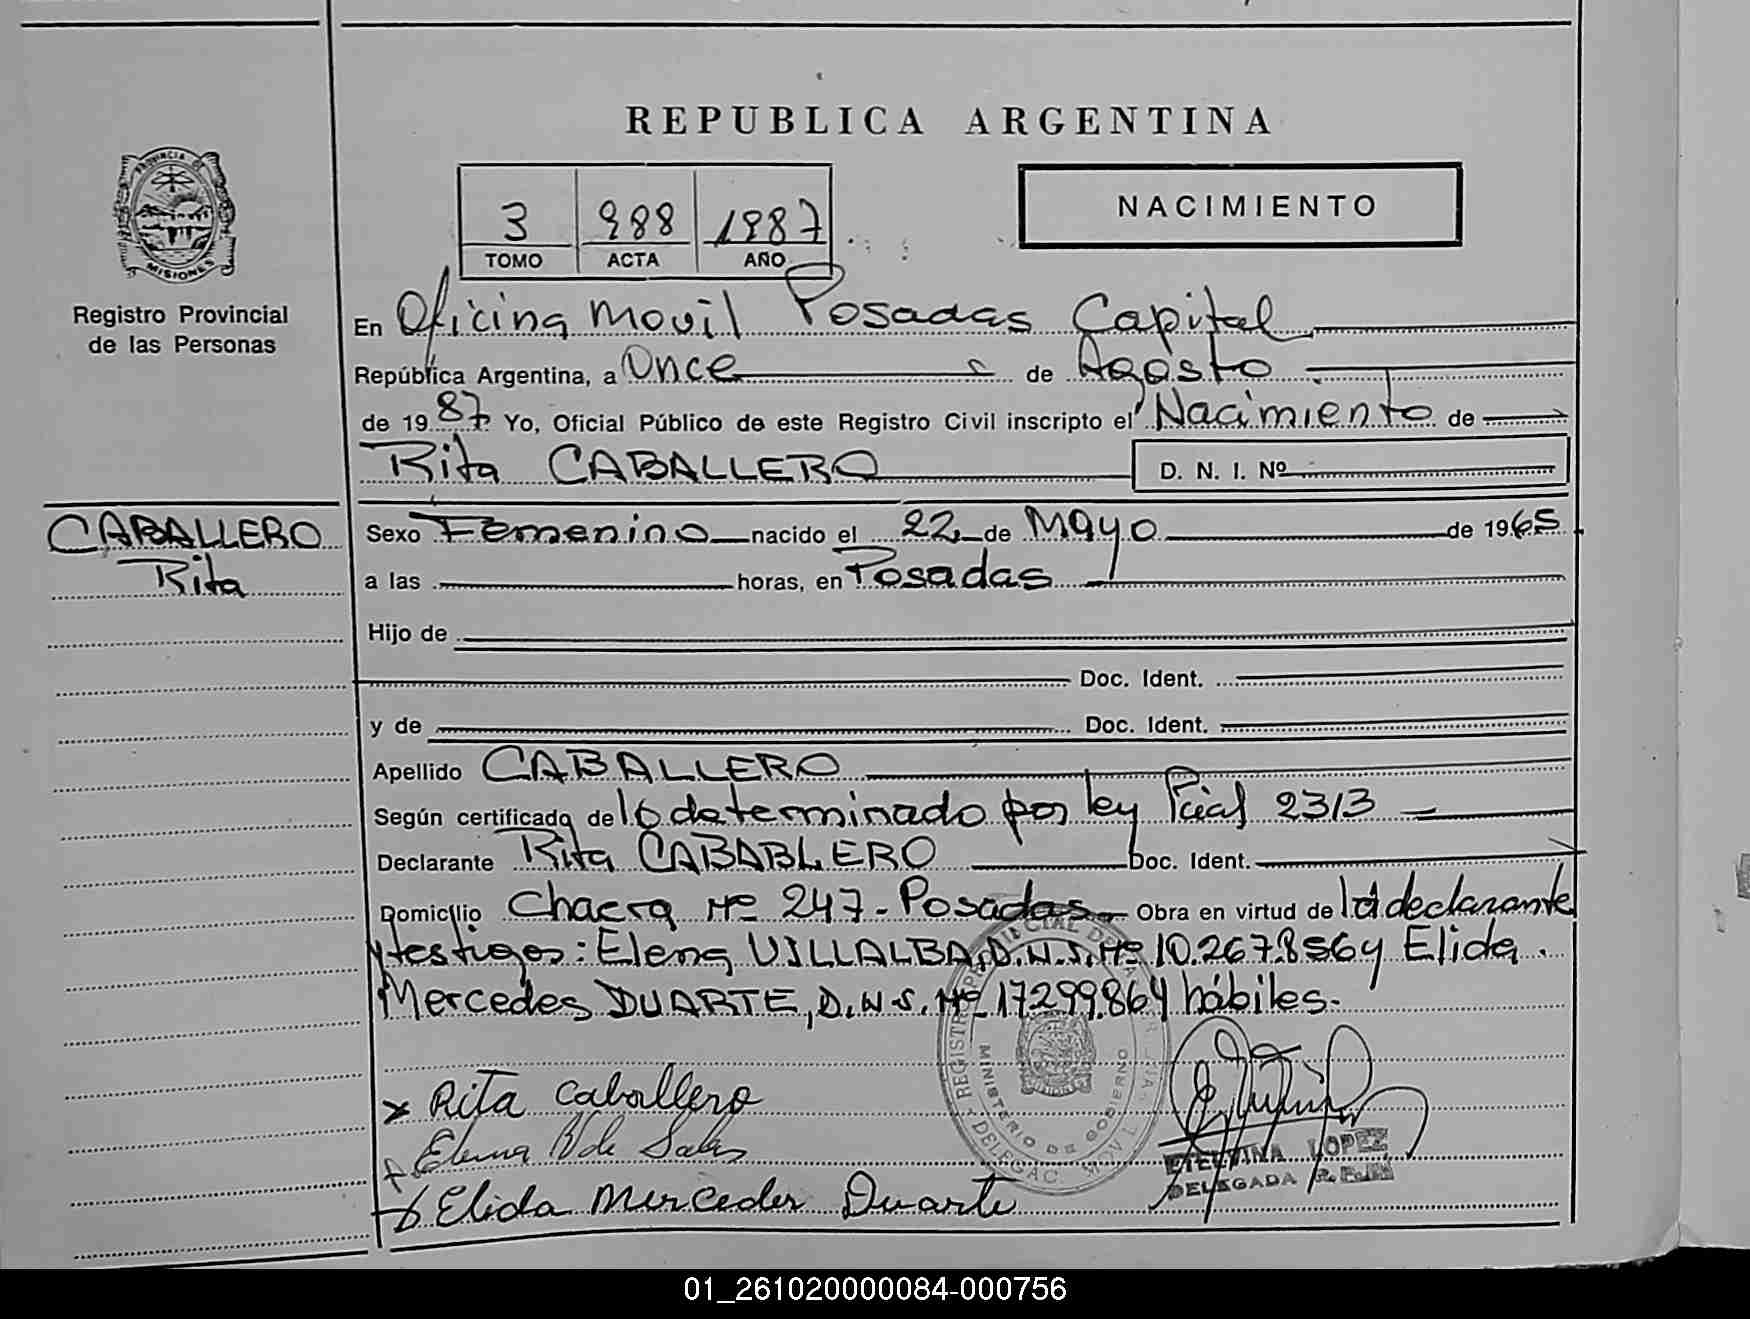 REPUBLICA ARGENTINA
3 988 1987
TOMO ACTA AÑO
NACIMIENTO
PROVINCIA DE
MISIONES
Registro Provincial
de las Personas
En Oficina Movil Posadas Capital
República Argentina, a Once de Agosto
de 1987 Yo, Oficial Público de este Registro Civil inscripto el Nacimiento de
Rita CABALLERO D. N. I. Nº
CABALLERO
Rita
Sexo Femenino nacido el 22 de Mayo de 1965
a las horas, en Posadas
Hijo de
Doc. Ident.
y de Doc. Ident.
Apellido CABALLERO
Según certificado de lo determinado por ley Pcial 2313
Declarante Rita CABABLERO Doc. Ident.
Domicilio Chacra Nº 247 - Posadas - Obra en virtud de la declarante
y testigos: Elena VILLALBA, D.N.I. Nº 10.267.856 y Elida
Mercedes DUARTE, D.N.I. Nº 17299.864 hábiles.
REGISTRO PROVINCIAL DE
MINISTERIO DE GOBIERNO
DELEGAC. MOVIL
x Rita Caballero
Elena V de Salas
Elida Mercedes Duarte
ETELVINA LOPEZ
DELEGADA R.P.P.
01_261020000084-000756